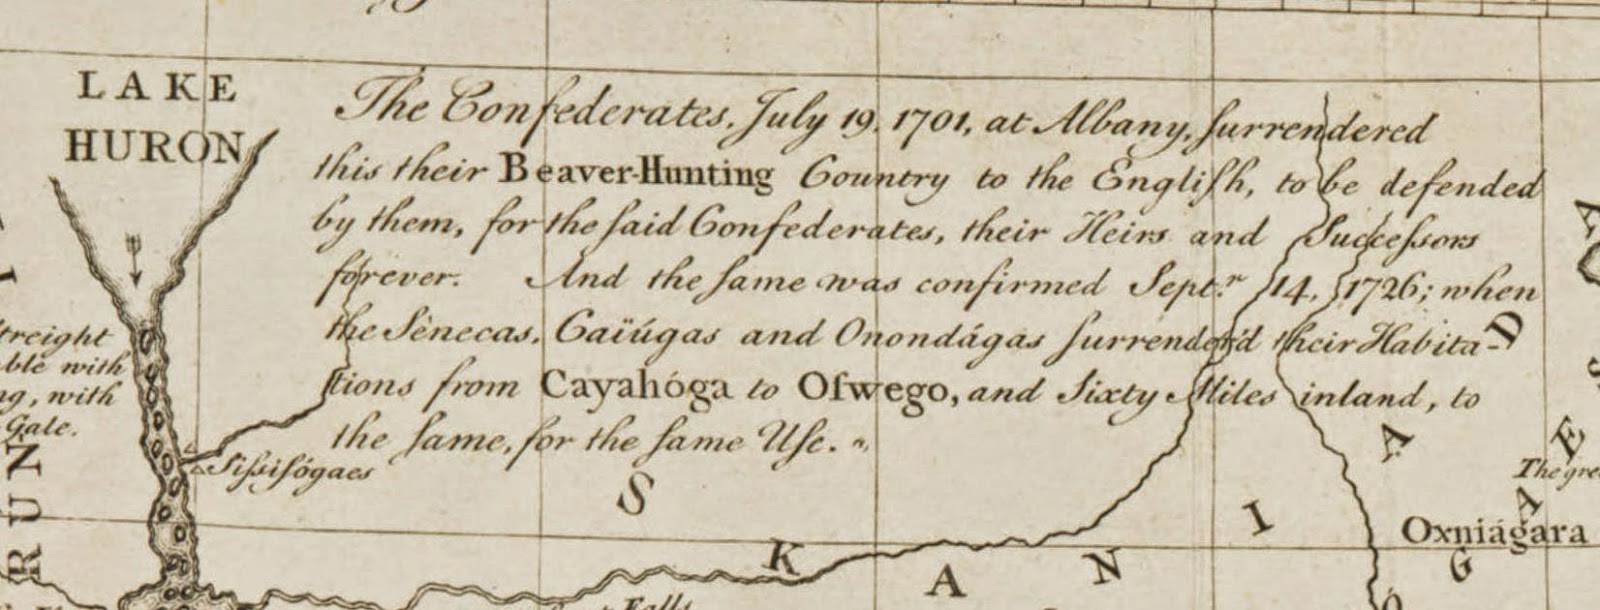 LAKE
HURON
The Confederates, July 19, 1701, at Albany, ſurrendered
this their Beaver-Hunting Country to the Engliſh, to be defended
by them, for the ſaid Confederates, their Heirs and Succeſsors
forever. And the ſame was confirmed Septr. 14, 1726; when
the Sènecas, Caïúgas and Onondágas ſurrender'd their Habita-
tions from Cayahóga to Oſwego, and Sixty Miles inland, to
the ſame, for the ſame Uſe.
treight
ble with
ng, with
Gale.
Siſsiſógaes
RUN
S K A N I A D
The gre
Oxniágara
Falls